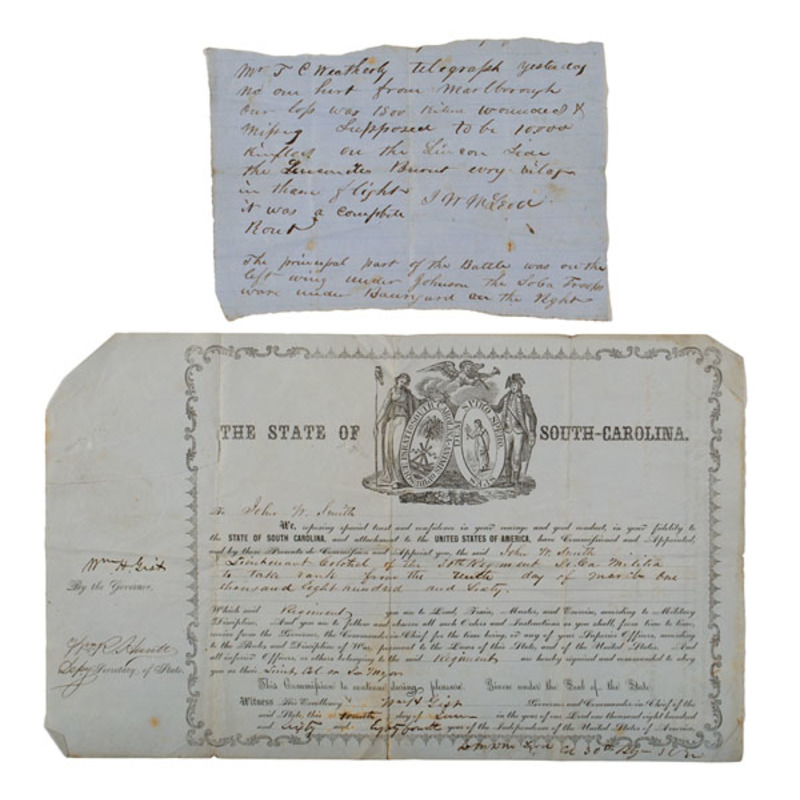 Mr T C Weatherly telegraph yesterday
No one hurt from Marlborough
our loss was 1500 killed wounded &
missing Supposed to be 10000
on the Side
the Burnt evry
in thear flight J W McLeod
it was a complete
Rout
The principal part of the Battle was on the
left wing under Johnson the So Ca Troops
ware under on the Right
THE STATE OF SOUTH-CAROLINA.
To John W. Smith
We, reposing special trust and confidence in your courage and good conduct, in your fidelity to
the STATE OF SOUTH CAROLINA, and attachment to the UNITED STATES OF AMERICA, have Commissioned and Appointed,
and by these Presents do Commission and Appoint you, the said John W. Smith
Lieutenant Colonel of the 30th Regiment So Ca Militia
to take rank from the day of March one
thousand eight hundred and Sixty.
Wm H. Gist
By the Governor.
Depy Secretary of State.
Which said Regiment you are to Lead, Train, Muster, and Exercise, according to Military
Discipline. And you are to follow and observe all such Orders and Instructions as you shall, from time to time,
receive from the Governor, the Commander-in-Chief for the time being, or any of your Superior Officers, according
to the Rules and Discipline of War, pursuant to the Laws of this State, and of the United States. And
all inferior Officers, or others belonging to the said Regiment are hereby required and commanded to obey
you as their Lieut. Col.
This Commission to continue during pleasure. Given under the Seal of the State.
Witness His Excellency Wm H. Gist Governor and Commander-in-Chief of the
said State, this day of June in the year of our Lord one thousand eight hundred
and Sixty and Eighty fourth year of the Independence of the United States of America.
Col 30th